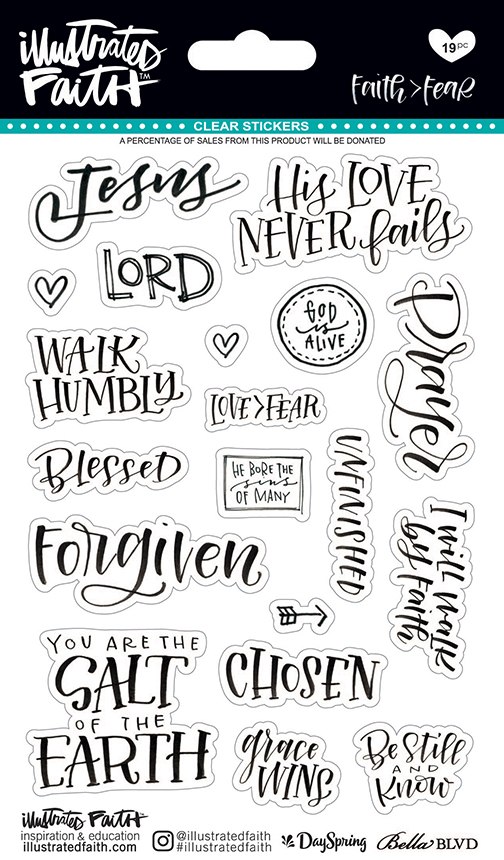 illustrated
FAITH™
19pc
FAITH>FEAR
CLEAR STICKERS
A PERCENTAGE OF SALES FROM THIS PRODUCT WILL BE DONATED
Jesus
His LOVE
NEVER fails
LORD
GOD
is
ALIVE
Prayer
WALK
HUMBLY
LOVE>FEAR
Blessed
HE BORE THE
sins
OF MANY
UNFINISHED
I will walk
by faith
Forgiven
YOU ARE THE
SALT
OF THE
EARTH
CHOSEN
grace
WINS
Be Still
AND
Know
illustrated FAITH
inspiration & education
illustratedfaith.com
@illustratedfaith
#illustratedfaith
DaySpring
Bella BLVD